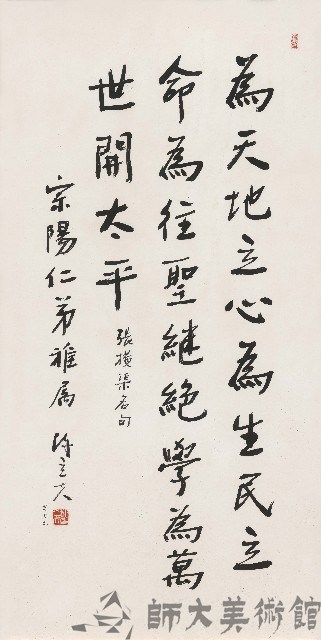 為天地立心為生民立
命為往聖継絶學為萬
世開太平
張橫渠名句
宗陽仁弟雅屬
陳立夫
師大美術館